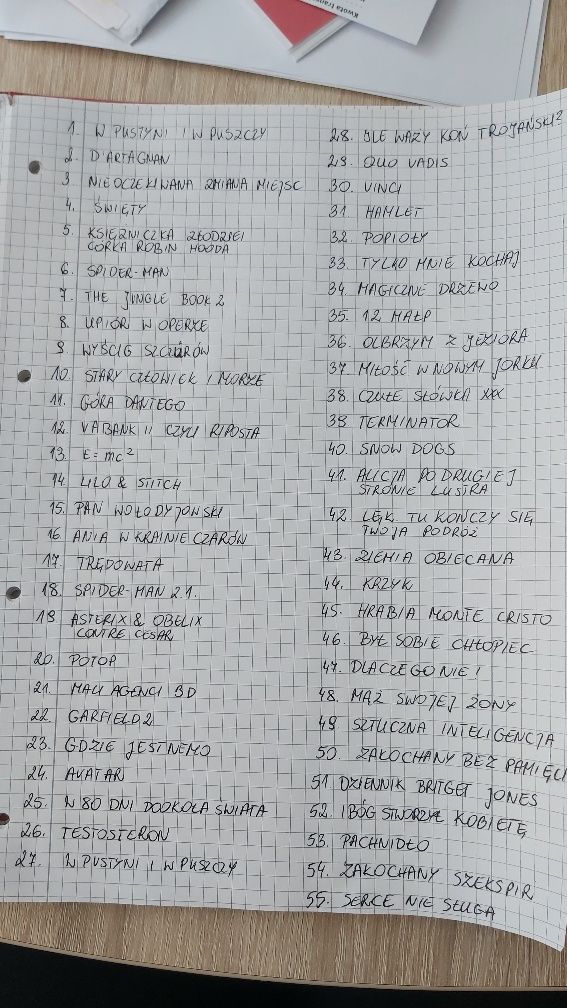 Kwota trans
1. W PUSTYNI I W PUSZCZY
2. D'ARTAGNAN
3. NIEOCZEKIWANA ZMIANA MIEJSC
4. ŚWIĘTY
5. KSIĘŻNICZKA ZŁODZIEI
CÓRKA ROBIN HOODA
6. SPIDER-MAN
7. THE JUNGLE BOOK 2
8. UPIÓR W OPERZE
9. WYŚCIG SZCZURÓW
10. STARY CZŁOWIEK I MORZE
11. GÓRA DANTEGO
12. VABANK II CZYLI RIPOSTA
13. E=mc²
14. LILO & STITCH
15. PAN WOŁODYJOWSKI
16. ANIA W KRAINIE CZARÓW
17. TRĘDOWATA
18. SPIDER-MAN 2.1.
19. ASTERIX & OBELIX
CONTRE CESAR
20. POTOP
21. MALI AGENCI 3D
22. GARFIELD 2
23. GDZIE JEST NEMO
24. AVATAR
25. W 80 DNI DOOKOŁA ŚWIATA
26. TESTOSTERON
27. W PUSTYNI I W PUSZCZY
28. ILE WAŻY KOŃ TROJAŃSKI?
29. QUO VADIS
30. VINCI
31. HAMLET
32. POPIOŁY
33. TYLKO MNIE KOCHAJ
34. MAGICZNE DRZEWO
35. 12 MAŁP
36. OLBRZYM Z JEZIORA
37. MIŁOŚĆ W NOWYM JORKU
38. CZUŁE SŁÓWKA XXX
39. TERMINATOR
40. SNOW DOGS
41. ALICJA PO DRUGIEJ
STRONIE LUSTRA
42. LĘK. TU KOŃCZY SIĘ
TWOJA PODRÓŻ
43. ZIEMIA OBIECANA
44. KRZYK
45. HRABIA MONTE CRISTO
46. BYŁ SOBIE CHŁOPIEC
47. DLACZEGO NIE!
48. MĄŻ SWOJEJ ŻONY
49. SZTUCZNA INTELIGENCJA
50. ZAKOCHANY BEZ PAMIĘCI
51. DZIENNIK BRITGET JONES
52. I BÓG STWORZYŁ KOBIETĘ
53. PACHNIDŁO
54. ZAKOCHANY SZEKSPIR
55. SERCE NIE SŁUGA